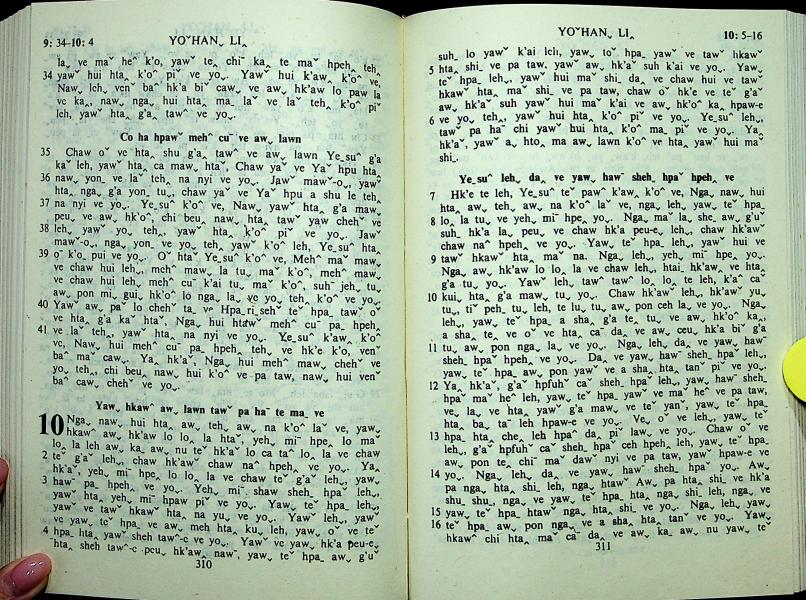 9: 34–10: 4 YOˇHAN˯ LI˰
la˯ ve maˇ heˆ k'o, yawˇ te˰ chiˉ ka˰ te maˇ hpeh˰ teh˰
34 yawˇ hui hta˰ k'oˆ piˇ ve yo˯. Yawˇ hui k'aw˰ k'oˆ ve,
Naw˯ leh˯ venˇ baˆ hk'a biˇ caw˯ ve aw˯ hk'aw lo paw la
ve ka˰, naw˯ nga˯ hui hta˰ ma˰ laˇ ve laˇ teh˰ k'oˆ piˇ
leh, yawˇ hta˰ g'a˰ tawˆ ve yo˯.
Co ha hpawˇ mehˆ cuˉ ve aw˯ lawn
35 Chaw oˇ ve hta˰ shu g'a˰ tawˆ ve aw˯ lawn Ye_suˆ g'a
kaˇ leh, yawˇ hta˰ ca mawˬ htaˇ, Chaw yaˇ ve Yaˇ hpu hta˰
36 naw˯ yon_ve laˇ teh˰ na nyi ve yo˯. Jawˇ mawˇ-o˯, yawˇ
hta˰ nga˯ g'a yon_ tu˯, chaw yaˇ ve Yaˇ hpu a shu le teh˰
37 na nyi ve yo˯. Ye_suˆ k'oˆ ve, Naw˯ yawˇ hta˰ g'a maw˰
peu˰ ve aw˯ hk'oˆ, chi beu˰ naw˯ hta˰ tawˇ yaw cheh˅ ve
38 leh, yawˇ yo˯ teh˰, yawˇ hta˰ k'oˆ piˇ ve yo˯. Jawˇ
mawˇ-o˯, nga˯ yon_ ve yo˯ teh˰ yawˇ k'oˆ leh, Ye_suˆ hta˰
39 oˉ k'o˰ pui ve yo˯. Oˇ htaˇ Ye_suˆ k'oˆ ve, Mehˆ maˇ maw˰
ve chaw hui leh˯, mehˆ maw˰ la tu˯ maˇ k'oˆ, mehˆ maw˰
ve chaw hui leh˯ mehˆ cuˉ k'ai tu˯ maˇ k'oˆ, suhˉ jeh˯ tu˯
aw˯ pon mi˯ gui˯ hk'oˆ lo nga˯ la˯ ve yo˯ teh˰ k'oˆ ve yo˯.
40 Yaw˅ aw˯ paˇ lo chehˇ ta˯ ve Hpa_ri_sehˇ teˇ hpa˰ tawˇ oˇ
ve hta˰ g'a kaˇ htaˇ, Nga˯ hui htawˇ mehˆ cuˉ pa_ hpeh˰
41 ve laˇ teh˰, yawˇ hta˰ na nyi ve yo˯. Ye_suˆ k'aw˰ k'oˆ
ve, Naw˯ hui mehˆ cuˉ pa_ hpeh˰ teh˰ ve hk'e k'o, venˇ
baˆ maˇ caw˯. Ya˰ hk'aˇ, Nga˯ hui mehˆ maw˰ cheh˅ ve
yo˯ teh˰, chi beu˰ naw˯ hui k'oˆ ve pa taw, naw˯ hui venˇ
baˆ caw˯ cheh˅ ve yo˯.
Yaw˯ hkaw˰ aw˯ lawn tawˇ pa haˉ te ma˰ ve
10 Nga˯ naw˯ hui hta˰ aw˯ teh˰ aw˯ na k'oˆ laˇ ve, yaw˯
hkaw˰ aw˯ hk'aw lo lo˰ la htaˇ, yeh˯ miˉ hpe˰ lo maˇ
lo˰ la leh aw˯ ka˰ aw˯ nu teˇ hk'aˇ lo ca taˆ lo˰ la ve chaw
2 teˇ g'aˇ leh˯, chaw hk'aw˅ chaw naˆ hpeh˰ ve yo˯. Ya˰
hk'aˇ, yeh˯ miˉ hpe˰ lo lo˰ la ve chaw teˇ g'aˇ leh˯, yaw˯
3 hawˉ pa_ hpeh˰ ve yo˯. Yeh˯ miˉ shaw sheh_ hpaˇ leh˯,
yawˇ hta˰ yeh˯ miˉ hpaw piˇ ve yo˯. Yaw˯ teˇ hpa˰ leh˯,
yawˇ ve tawˇ hkaw˰ hta˰ na yu˯ ve yo˯. Yawˇ leh˯, yawˇ
ve yaw˯ teˇ hpa˰ ve aw˯ meh hta˰ ku˯ leh, yaw˯ oˇ ve teˇ
4 hpa˰ hta˰ yaw˅ sheh tawˆ-e ve yo˯. Yawˇ ve yaw˯ hk'a peu-e˯
hta˰ sheh tawˆ-e peu˰ hk'aw˰ nawˉ, yaw˯ teˇ hpa˰ aw˯ g'uˇ
310
YOˇHAN˯ LI˰ 10: 5–16
suh_ lo yawˇ k'ai leh˯, yaw˯ teˇ hpa˰ yawˇ ve tawˇ hkaw˰
5 hta˰ shi_ ve pa taw, yaw˯ aw˯ hk'aˇ suh k'ai ve yo˯. Yaw˯
teˇ hpa˰ leh˯, yaw˯ hui maˇ shi_ da˯ ve chaw hui ve tawˇ
hkaw˰ hta˰ maˇ shi_ ve pa taw, chaw oˇ hk'e ve teˇ g'aˇ
aw˯ hk'aˇ suh yaw˯ hui maˇ k'ai ve aw˯ hk'oˆ ka˰ hpaw-e
6 ve yo˯ teh˰, yawˇ hui hta˰ k'oˆ piˇ ve yo˯. Ye_suˆ leh˯,
tawˇ pa haˉ chi yawˇ hui hta˰ k'oˆ ma˰ piˇ ve yo˯. Ya˰
hk'aˇ, yawˇ a˰ hto˰ ma aw˯ lawn k'oˆ ve hta˰ yawˇ hui maˇ
shi_.
Ye_suˆ leh˯ da˯ ve yaw˯ hawˉ sheh_ hpaˇ hpeh˰ ve
7 Hk'e te leh, Ye_suˆ teˇ pawˆ k'aw˰ k'oˆ ve, Nga˯ naw˯ hui
hta˰ aw˯ teh˰ aw˯ na k'oˆ laˇ ve, nga˯ leh˯, yaw˯ teˇ hpa˰
8 lo˰ la tu˯ ve yeh˯ miˉ hpe˰ yo˯. Nga˯ maˇ la_ she_ aw˯ g'uˇ
suh_ hk'a la˯ peu˰ ve chaw hk'a peu-e˯ leh˯, chaw hk'aw˅
chaw naˆ hpeh˰ ve yo˯. Yaw˯ teˇ hpa˰ leh˯, yawˇ hui ve
9 tawˇ hkaw˰ hta˰ maˇ na. Nga˯ leh˯, yeh˯ miˉ hpe˰ yo˯.
Nga˯ aw˯ hk'aw lo lo˰ la ve chaw leh˯, htai_ hk'aw˰ ve hta˰
g'a tu˯ yo˯. Yawˇ leh˯ tawˆ tawˆ lo˰ lo˰ te leh, k'aˆ caˉ
10 kui˯ hta˰ g'a maw˰ tu˯ yo˯. Chaw hk'aw˅ leh˯, hk'aw˅ yu˯
tu˯, tiˇ peh˯ tu˯ leh, te lu˰ tu˯ aw˯ pon ceh la˯ ve yo˯. Nga˯
leh˯, yaw˯ teˇ hpa˰ a sha˰ g'a te˰ tu˯ ve aw˯ hk'oˆ ka˰,
a sha˰ te˰ ve oˇ ve hta˰ caˉ da˰ ve aw˯ ceu˯ hk'a biˇ g'a
11 tu˯ aw˯ pon nga˯ la˯ ve yo˯. Nga˯ leh˯ da˯ ve yaw˯ hawˉ
sheh_ hpaˇ hpeh˰ ve yo˯. Da˯ ve yaw˯ hawˉ sheh_ hpaˇ leh˯,
yaw˯ teˇ hpa˰ aw˯ pon yawˇ ve a sha˰ hta˰ tanˇ piˇ ve yo˯.
12 Ya˰ hk'aˇ, g'aˆ hpfuhˇ caˇ sheh_ hpaˇ leh˯, yaw˯ hawˉ sheh_
hpaˇ maˇ heˆ leh, yaw˯ teˇ hpa˰ yawˇ ve maˇ heˆ ve pa taw,
ve˯ la˯ ve hta˰ yawˇ g'a maw˰ ve teˇ yanˇ, yaw˯ teˇ hpa˰
hta˰ ba˰ taˉ leh hpaw-e ve yo˯. Ve˯ oˇ ve leh˯, yaw˯ teˇ
13 hpa˰ hta˰ che˰ leh hpaˆ da˰ piˇ law˯ ve yo˯. Chaw oˇ ve
leh˯, g'aˆ hpfuhˇ caˇ sheh_ hpaˇ ceh hpeh˰ leh, yaw˯ teˇ hpa˰
aw˯ pon te˰ chiˉ maˇ dawˇ nyi ve pa taw, yawˇ hpaw-e ve
14 yo˯. Nga˯ leh˯ da˯ ve yaw˯ hawˉ sheh_ hpaˇ yo˯. Aw˯
pa nga˯ hta˰ shi_ leh, nga˯ htawˇ Aw˯ pa hta˰ shi_ ve hk'a
shu_ shu_, nga˯ ve yaw˯ teˇ hpa˰ hta˰ nga˯ shi_ leh, nga˯ ve
15 yaw˯ teˇ hpa˰ htawˇ nga˯ hta˰ shi_ ve yo˯. Nga˯ leh˯ yaw˯
16 teˇ hpa˰ aw˯ pon nga˯ ve a sha˰ hta˰ tanˇ ve yo˯. Yaw˯
hkaw˰ chi hta˰ maˇ caˉ da˰ ve aw˯ ka˰ aw˯ nu yaw˯ teˇ
311